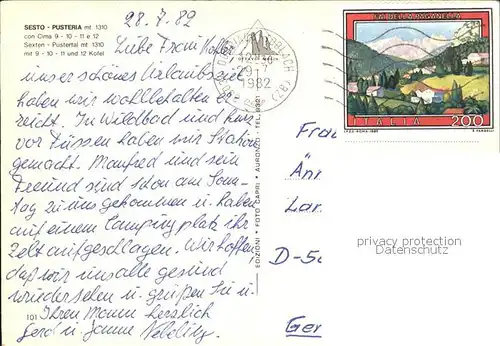 SESTO - PUSTERIA mt 1310
con Cima 9 - 10 - 11 e 12
Sexten - Pustertal mt 1310
mit 9 - 10 - 11 und 12 Kofel
28.7.82
Liebe Frau Kohler
unser schönes Urlaubsziel
haben wir wohlbehalten er-
reicht. In Wildbad und kurz
vor Füssen haben wir Station
gemacht. Manfred und sein
Freund sind schon am Sonn-
tag zu uns gekommen u. haben
auf einem Campingplatz ihr
Zelt aufgeschlagen. Wir hoffen
daß wir uns alle gesund
wiedersehen u. grüßen Sie u.
Ihren Mann herzlich
Gerd u. Hanne
101
EDIZIONI - FOTO CAPRI - AURONZO - TEL. 9391
1982
FAI DELLA PAGANELLA
ITALIA 200
I.P.Z.S. - ROMA - 1982
Frau
Änn
Lar
D-50
Ger
privacy protection
Datenschutz